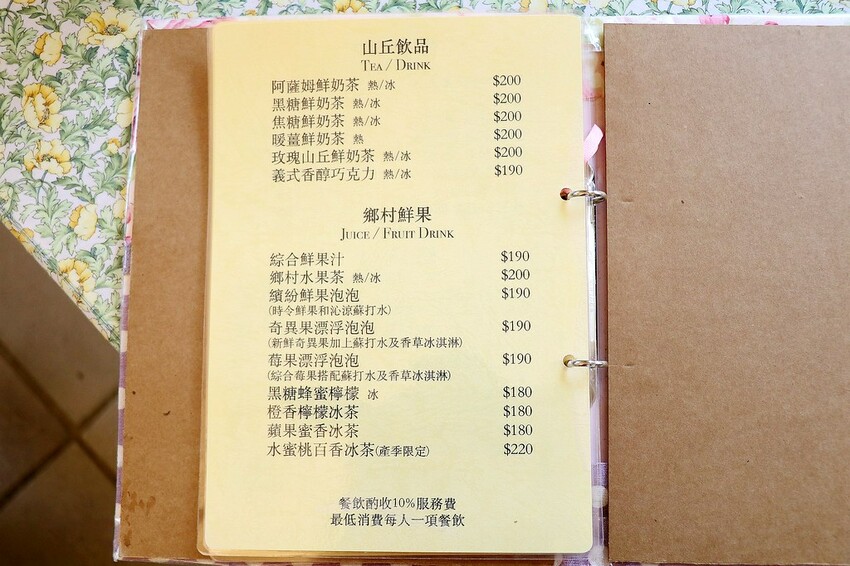 山丘飲品
TEA / DRINK
阿薩姆鮮奶茶 熱/冰 $200
黑糖鮮奶茶 熱/冰 $200
焦糖鮮奶茶 熱/冰 $200
暖薑鮮奶茶 熱 $200
玫瑰山丘鮮奶茶 熱/冰 $200
義式香醇巧克力 熱/冰 $190
鄉村鮮果
JUICE / FRUIT DRINK
綜合鮮果汁 $190
鄉村水果茶 熱/冰 $200
繽紛鮮果泡泡 $190
(時令鮮果和沁涼蘇打水)
奇異果漂浮泡泡 $190
(新鮮奇異果加上蘇打水及香草冰淇淋)
莓果漂浮泡泡 $190
(綜合莓果搭配蘇打水及香草冰淇淋)
黑糖蜂蜜檸檬 冰 $180
橙香檸檬冰茶 $180
蘋果蜜香冰茶 $180
水蜜桃百香冰茶(產季限定) $220
餐飲酌收10%服務費
最低消費每人一項餐飲